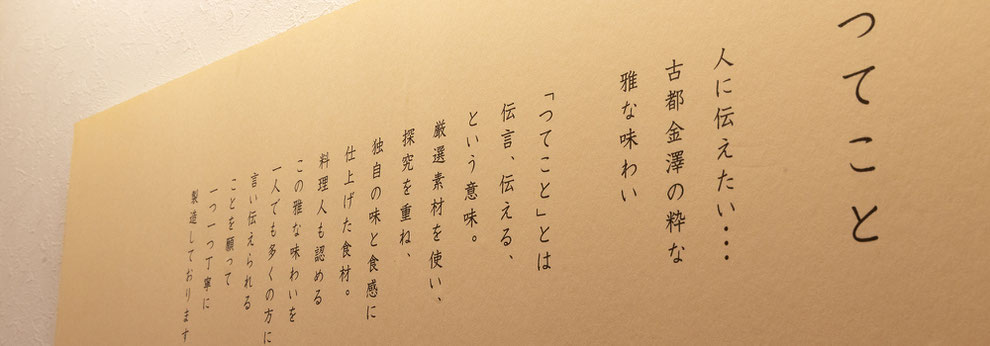 つてこと
人に伝えたい・・・
古都金澤の粋な
雅な味わい
「つてこと」とは
伝言、伝える、
という意味。
厳選素材を使い、
探究を重ね、
独自の味と食感に
仕上げた食材。
料理人も認める
この雅な味わいを
一人でも多くの方に
言い伝えられる
ことを願って
一つ一つ丁寧に
製造しております